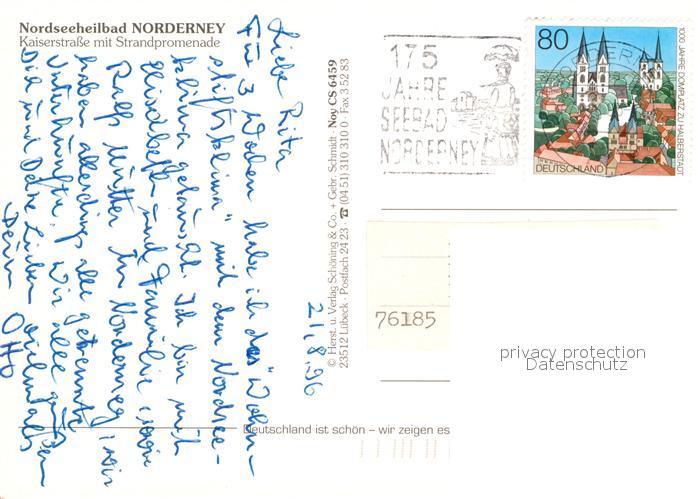 Nordseeheilbad NORDERNEY
Kaiserstraße mit Strandpromenade
21.8.96
Liebe Rita
Für 3 Wochen habe ich das "Wohn-
stiftsklima" mit dem Nordsee-
klima getauscht. Ich bin mit
Elisabeth und Familie sowie
Ralfs Mutter in Norderney, wir
haben allerdings alle getrennte
Unterkünfte. Wir alle grüßen
Dich und Deine Lieben vielmals
Dein Otto
© Herst. u. Verlag Schöning & Co. + Gebr. Schmidt · Noy CS 6459
23512 Lübeck · Postfach 24 23 · ☎ (04 51) 310 310 0 · Fax 3 52 83
175
JAHRE
SEEBAD
NORDERNEY
80
1000 JAHRE DOMPLATZ ZU HALBERSTADT
DEUTSCHLAND
76185
privacy protection
Datenschutz
Deutschland ist schön – wir zeigen es